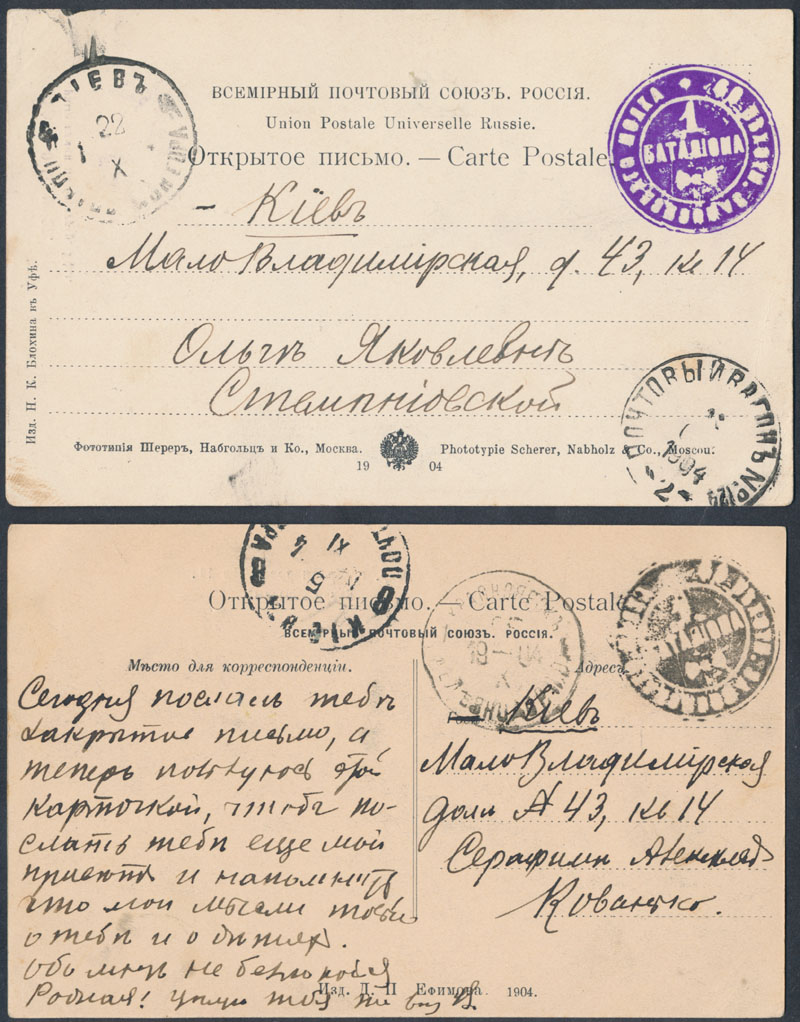 КІЕВЪ
22
X
ВСЕМІРНЫЙ ПОЧТОВЫЙ СОЮЗЪ. РОССІЯ.
Union Postale Universelle Russie.
Открытое письмо. — Carte Postale.
ПОЛКА
1
БАТАЛІОНА
– Кіевъ
МалоВладимірская, д. 43, кв 14
Ольгѣ Яковлевнѣ
Изд. Н. К. Блохина въ Уфѣ.
Фототипія Шереръ, Набгольцъ и Ко., Москва.
Phototypie Scherer, Nabholz & Co., Moscou.
19 04
ПОЧТОВЫЙ ВАГОНЪ №124
1904
-2-
КІЕВЪ
Открытое письмо. — Carte Postale
ВСЕМІРНЫЙ ПОЧТОВЫЙ СОЮЗЪ. РОССІЯ.
Мѣсто для корреспонденціи.
Адресъ
19-04
X
1
БАТАЛІОНА
Сегодня послалъ тебѣ
закрытое письмо, а
теперь
карточкой, чтобы по-
слать тебѣ еще мой
привѣтъ и напомнить
что мои мысли
о тебѣ и о дѣтяхъ.
Обо мнѣ не безпокойся
Родная! Цѣлую тебя
Кіевъ
МалоВладимірская
домъ № 43, кв 14
Серафимѣ
Кованько.
Изд. Д. П Ефимова 1904.